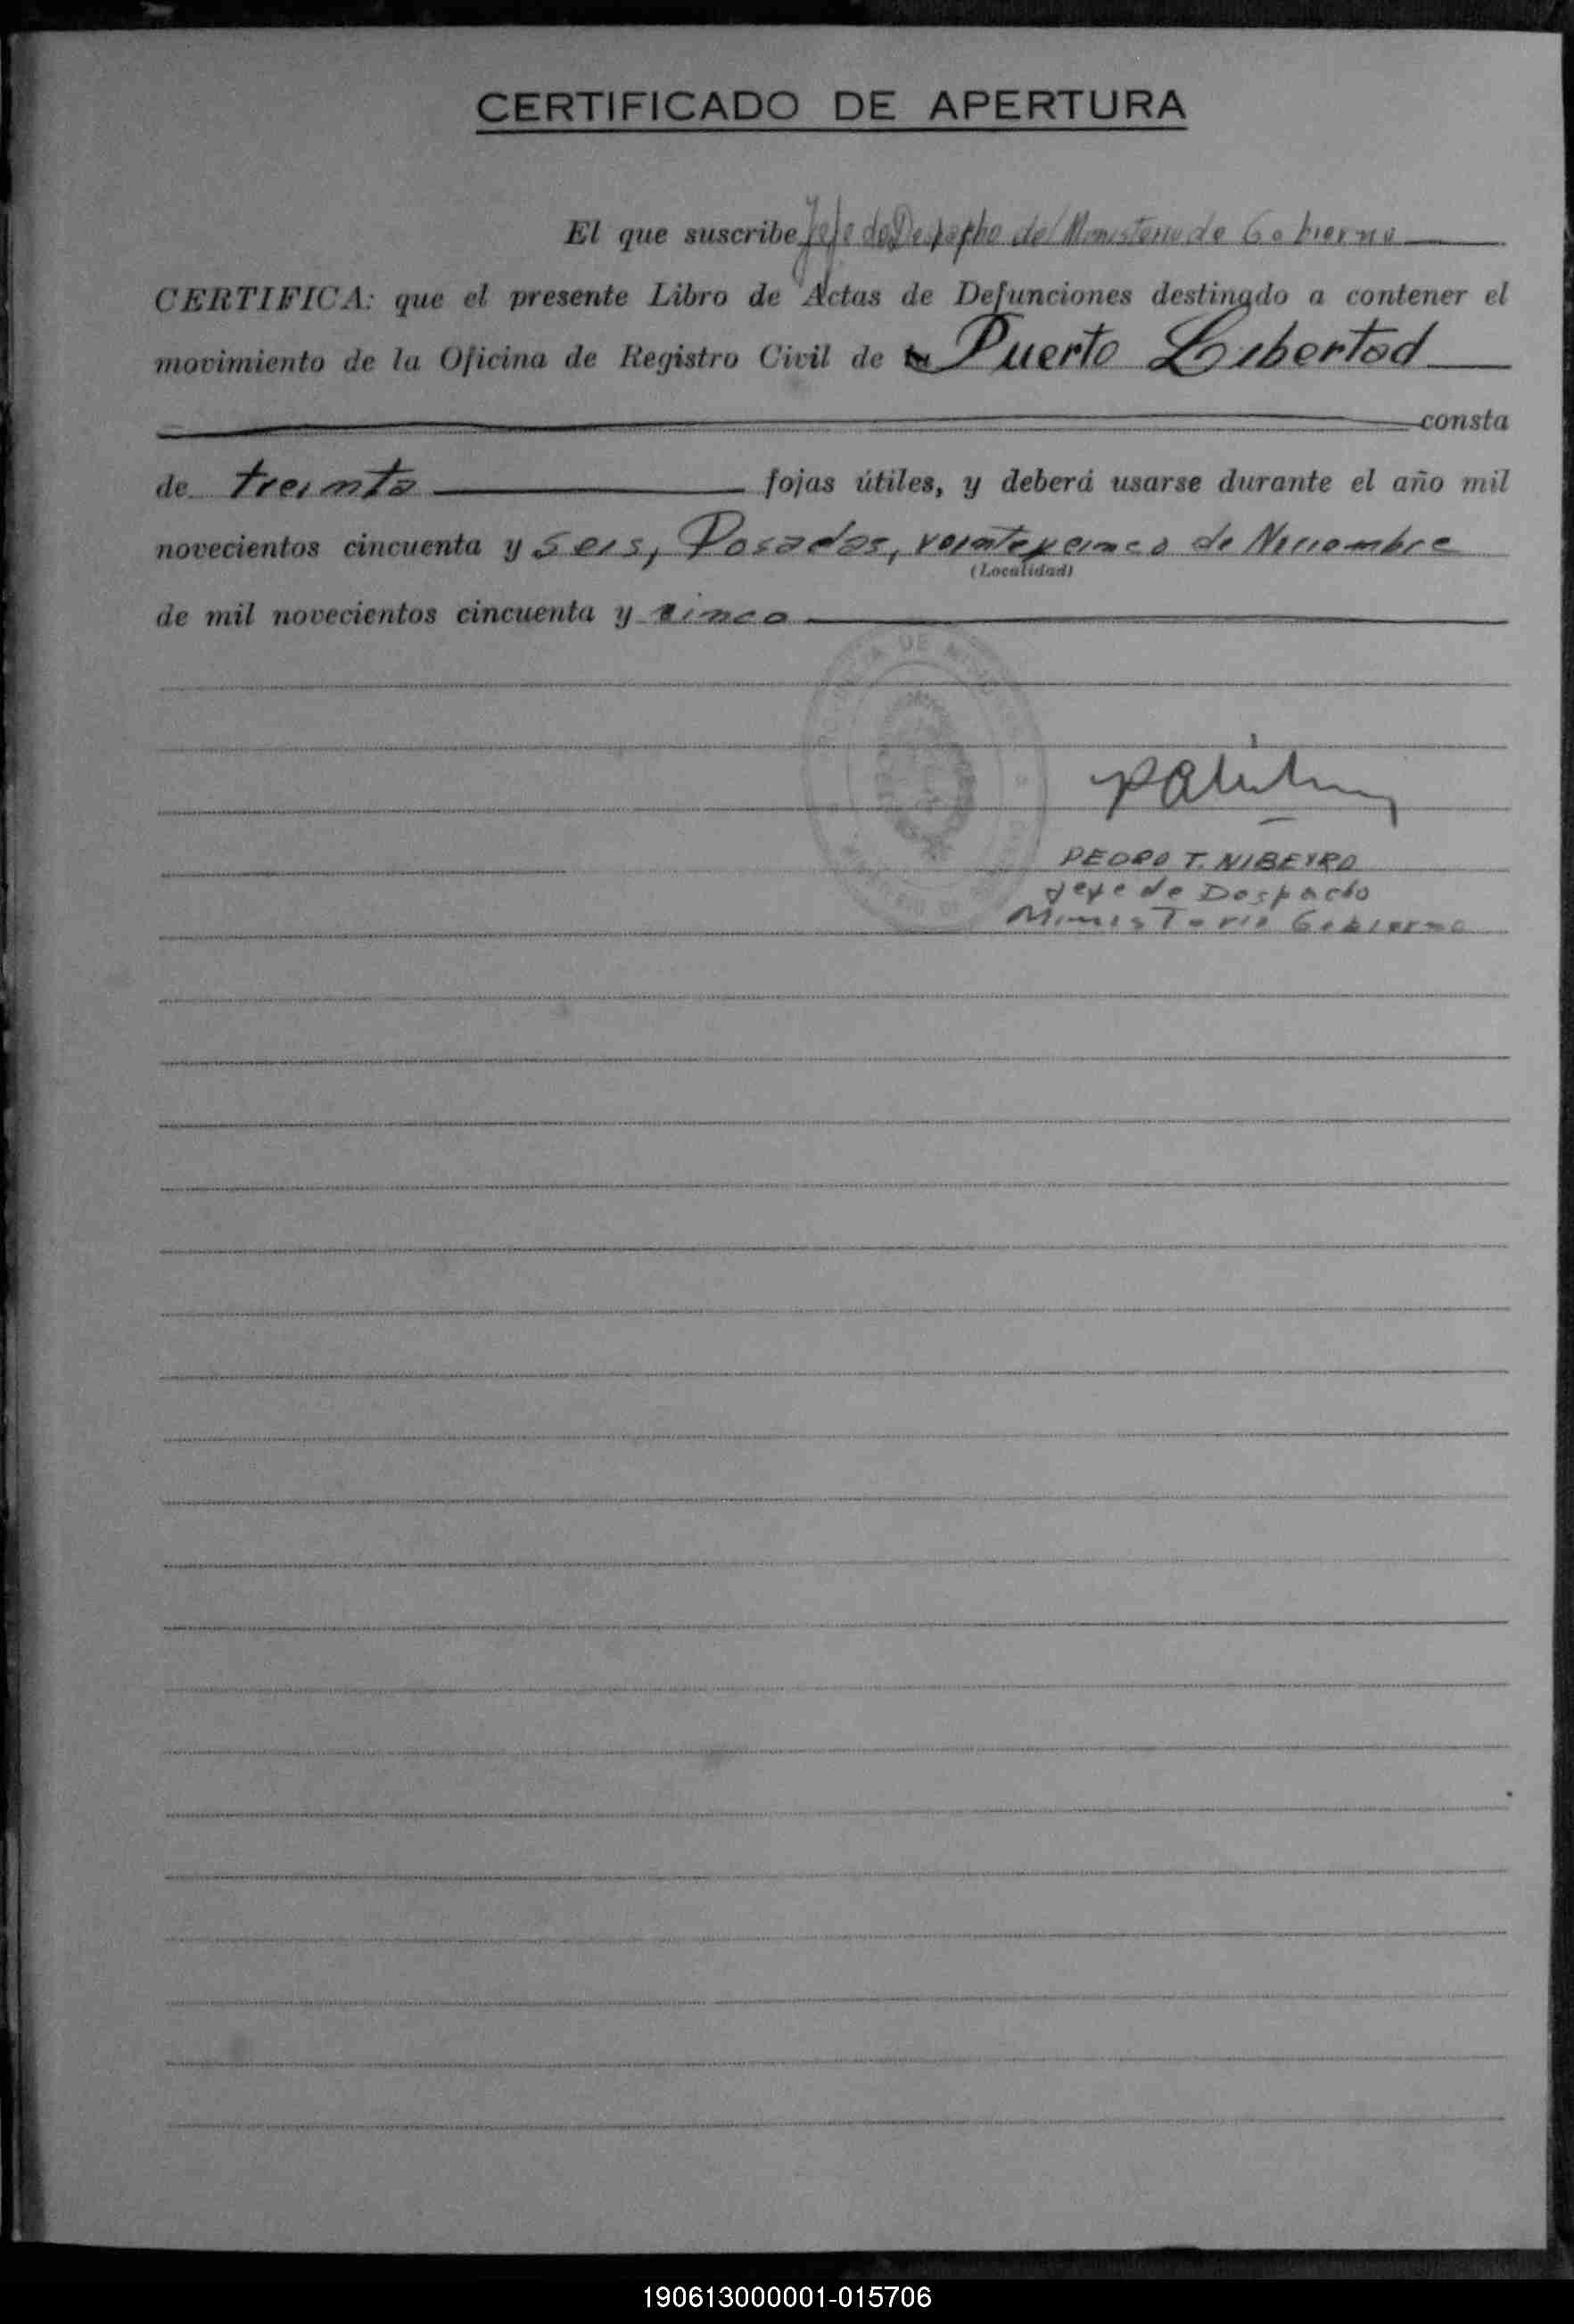 CERTIFICADO DE APERTURA
El que suscribe Jefe de Despacho del Ministerio de Gobierno
CERTIFICA: que el presente Libro de Actas de Defunciones destinado a contener el
movimiento de la Oficina de Registro Civil de Puerto Libertad
consta
de treinta fojas útiles, y deberá usarse durante el año mil
novecientos cincuenta y seis, Posadas, veinte y cinco de Noviembre
(Localidad)
de mil novecientos cincuenta y cinco
DE
PEDRO T. NIBEYRO
Jefe de Despacho
Ministerio Gobierno
190613000001-015706